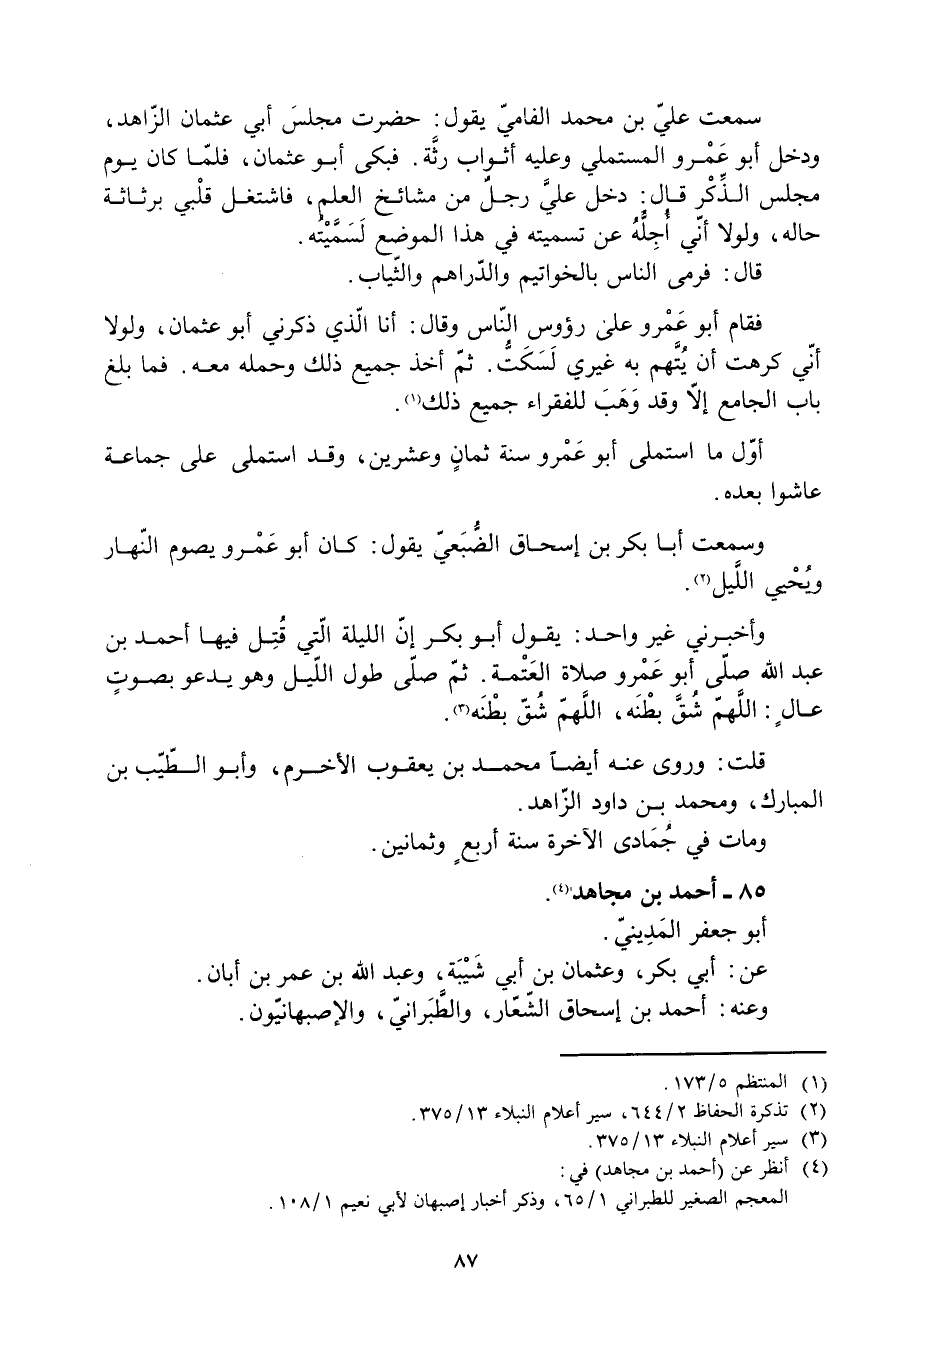 سمعت عليّ بن محمد الفاميّ يقول: حضرت مجلسَ أبي عثمان الزّاهد،
ودخل أبو عَمْرو المستملي وعليه أثواب رثَّة. فبكى أبو عثمان، فلمّا كان يوم
مجلس الذِّكْر قال: دخل عليَّ رجلٌ من مشائخ العلم، فاشتغل قلْبي برثاثة
حاله، ولولا أنّي أُجِلُّهُ عن تسميته في هذا الموضع لَسَمَّيْتُه.
قال: فرمى الناس بالخواتيم والدّراهم والثّياب.
فقام أبو عَمْرو على رؤوس النّاس وقال: أنا الّذي ذكرني أبو عثمان، ولولا
أنّي كرهت أن يُتَّهم به غيري لَسَكَتُّ. ثمّ أخذ جميع ذلك وحمله معه. فما بلغ
باب الجامع إلّا وقد وَهَبَ للفقراء جميع ذلك(١).
أوّل ما استملى أبو عَمْرو سنة ثمانٍ وعشرين، وقد استملى على جماعة
عاشوا بعده.
وسمعت أبا بكر بن إسحاق الضُّبَعيّ يقول: كان أبو عَمْرو يصوم النّهار
ويُحْيي اللَّيل(٢).
وأخبرني غير واحد: يقول أبو بكر إنّ الليلة الّتي قُتِل فيها أحمد بن
عبد الله صلّى أبو عَمْرو صلاة العَتْمة. ثمّ صلّى طول اللّيل وهو يدعو بصوتٍ
عالٍ: اللَّهمّ شُقَّ بطْنَه، اللَّهمّ شُقّ بطْنَه(٣).
قلت: وروى عنه أيضاً محمد بن يعقوب الأخرم، وأبو الطّيّب بن
المبارك، ومحمد بن داود الزّاهد.
ومات في جُمَادى الآخرة سنة أربعٍ وثمانين.
٨٥ ـ أحمد بن مجاهد(٤).
أبو جعفر المَدِينيّ.
عن: أبي بكر، وعثمان بن أبي شَيْبَة، وعبد الله بن عمر بن أبان.
وعنه: أحمد بن إسحاق الشّعّار، والطَّبَرانيّ، والإصبهانيّون.
(١) المنتظم ١٧٣/٥.
(٢) تذكرة الحفاظ ٦٤٤/٢، سير أعلام النبلاء ٣٧٥/١٣.
(٣) سير أعلام النبلاء ٣٧٥/١٣.
(٤) أنظر عن (أحمد بن مجاهد) في:
المعجم الصغير للطبراني ٦٥/١، وذكر أخبار إصبهان لأبي نعيم ١٠٨/١.
٨٧